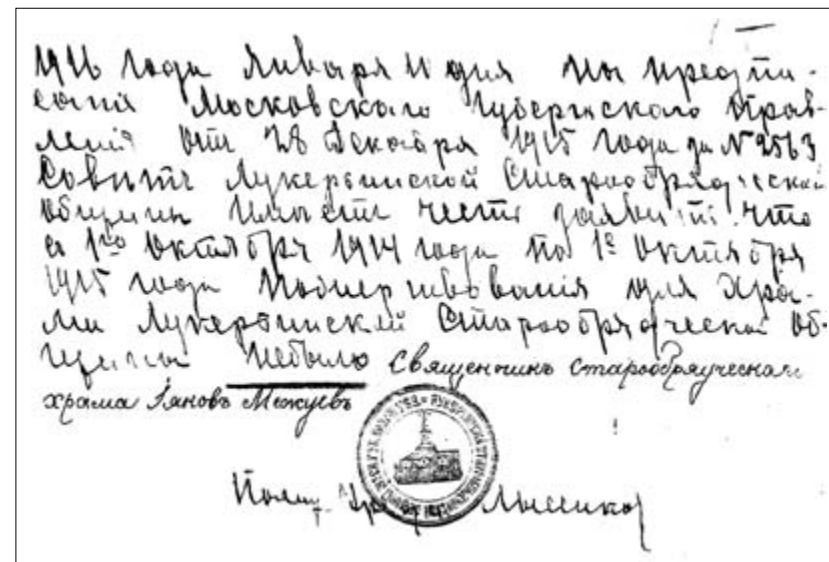 1916 года Января 11 дня На предпи-
сания Московскаго Губернскаго Прав-
ления От 28 Декабря 1915 года за № 2563
Советъ Лукерьинской Старообрядческой
Общины Имеетъ честь заявить что
с 1го Октября 1914 года по 1е Октября
1915 года Пожертвования для Хра-
ма Лукерьинской Старообрядческой Об-
щины Небыло Священникъ Старообрядческаго
храма Иаковъ Межуевъ